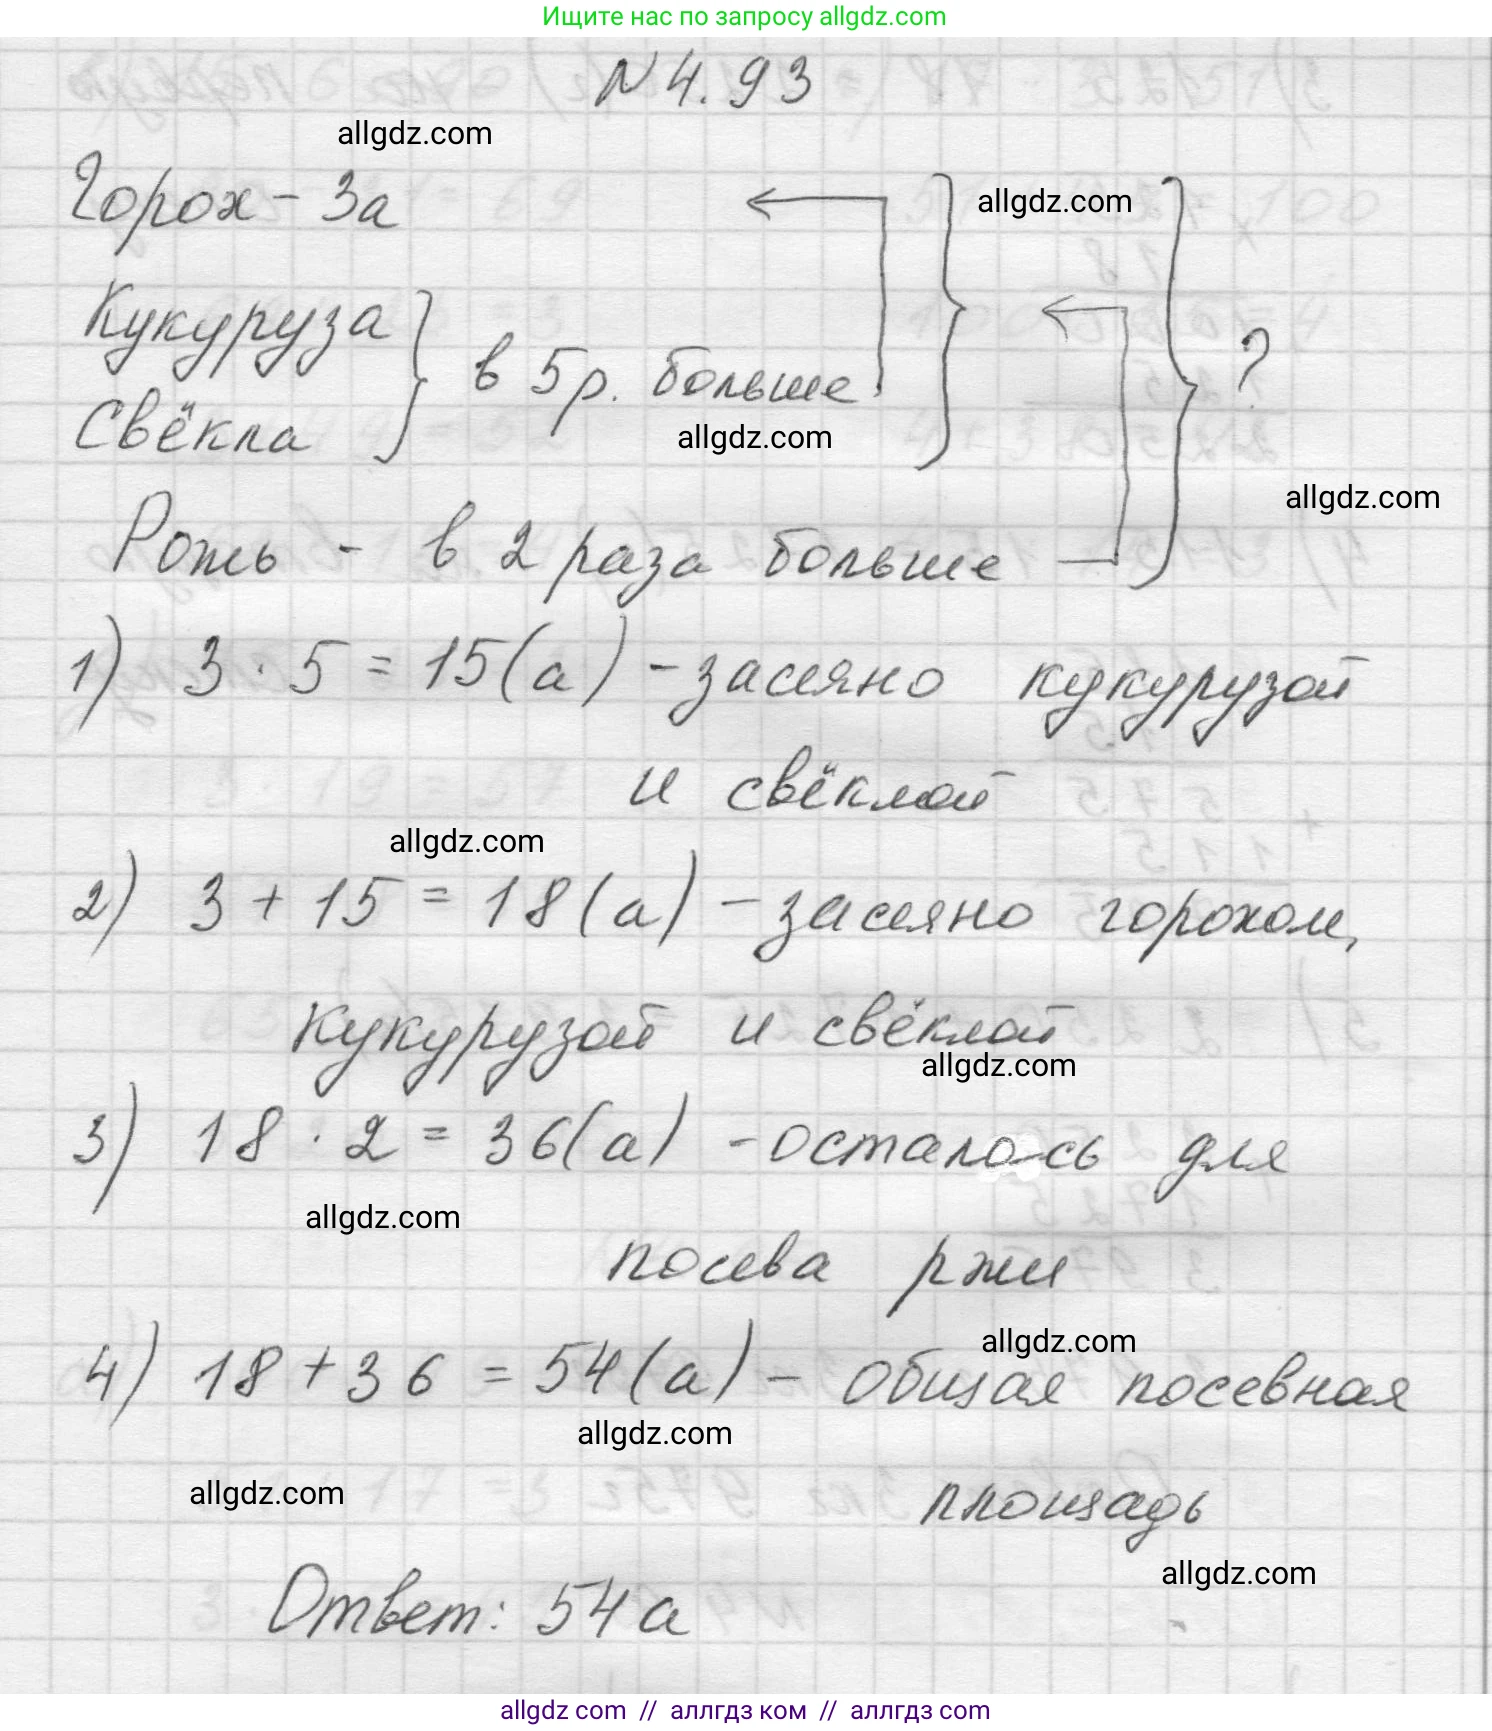 Ищите нас по запросу allgdz.com
N 4.93
allgdz.com
Горох - 3а
allgdz.com
Кукуруза
Свёкла
в 5 р. больше
?
allgdz.com
allgdz.com
Рожь - в 2 раза больше
1) 3 · 5 = 15 (а) - засеяно кукурузой
и свёклой
allgdz.com
2) 3 + 15 = 18 (а) - засеяно горохом,
кукурузой и свёклой
allgdz.com
3) 18 · 2 = 36 (а) - осталось для
allgdz.com
посева ржи
allgdz.com
4) 18 + 36 = 54 (а) - общая посевная
allgdz.com
allgdz.com
площадь
allgdz.com
Ответ: 54 а
allgdz.com // аллгдз ком // аллгдз.com